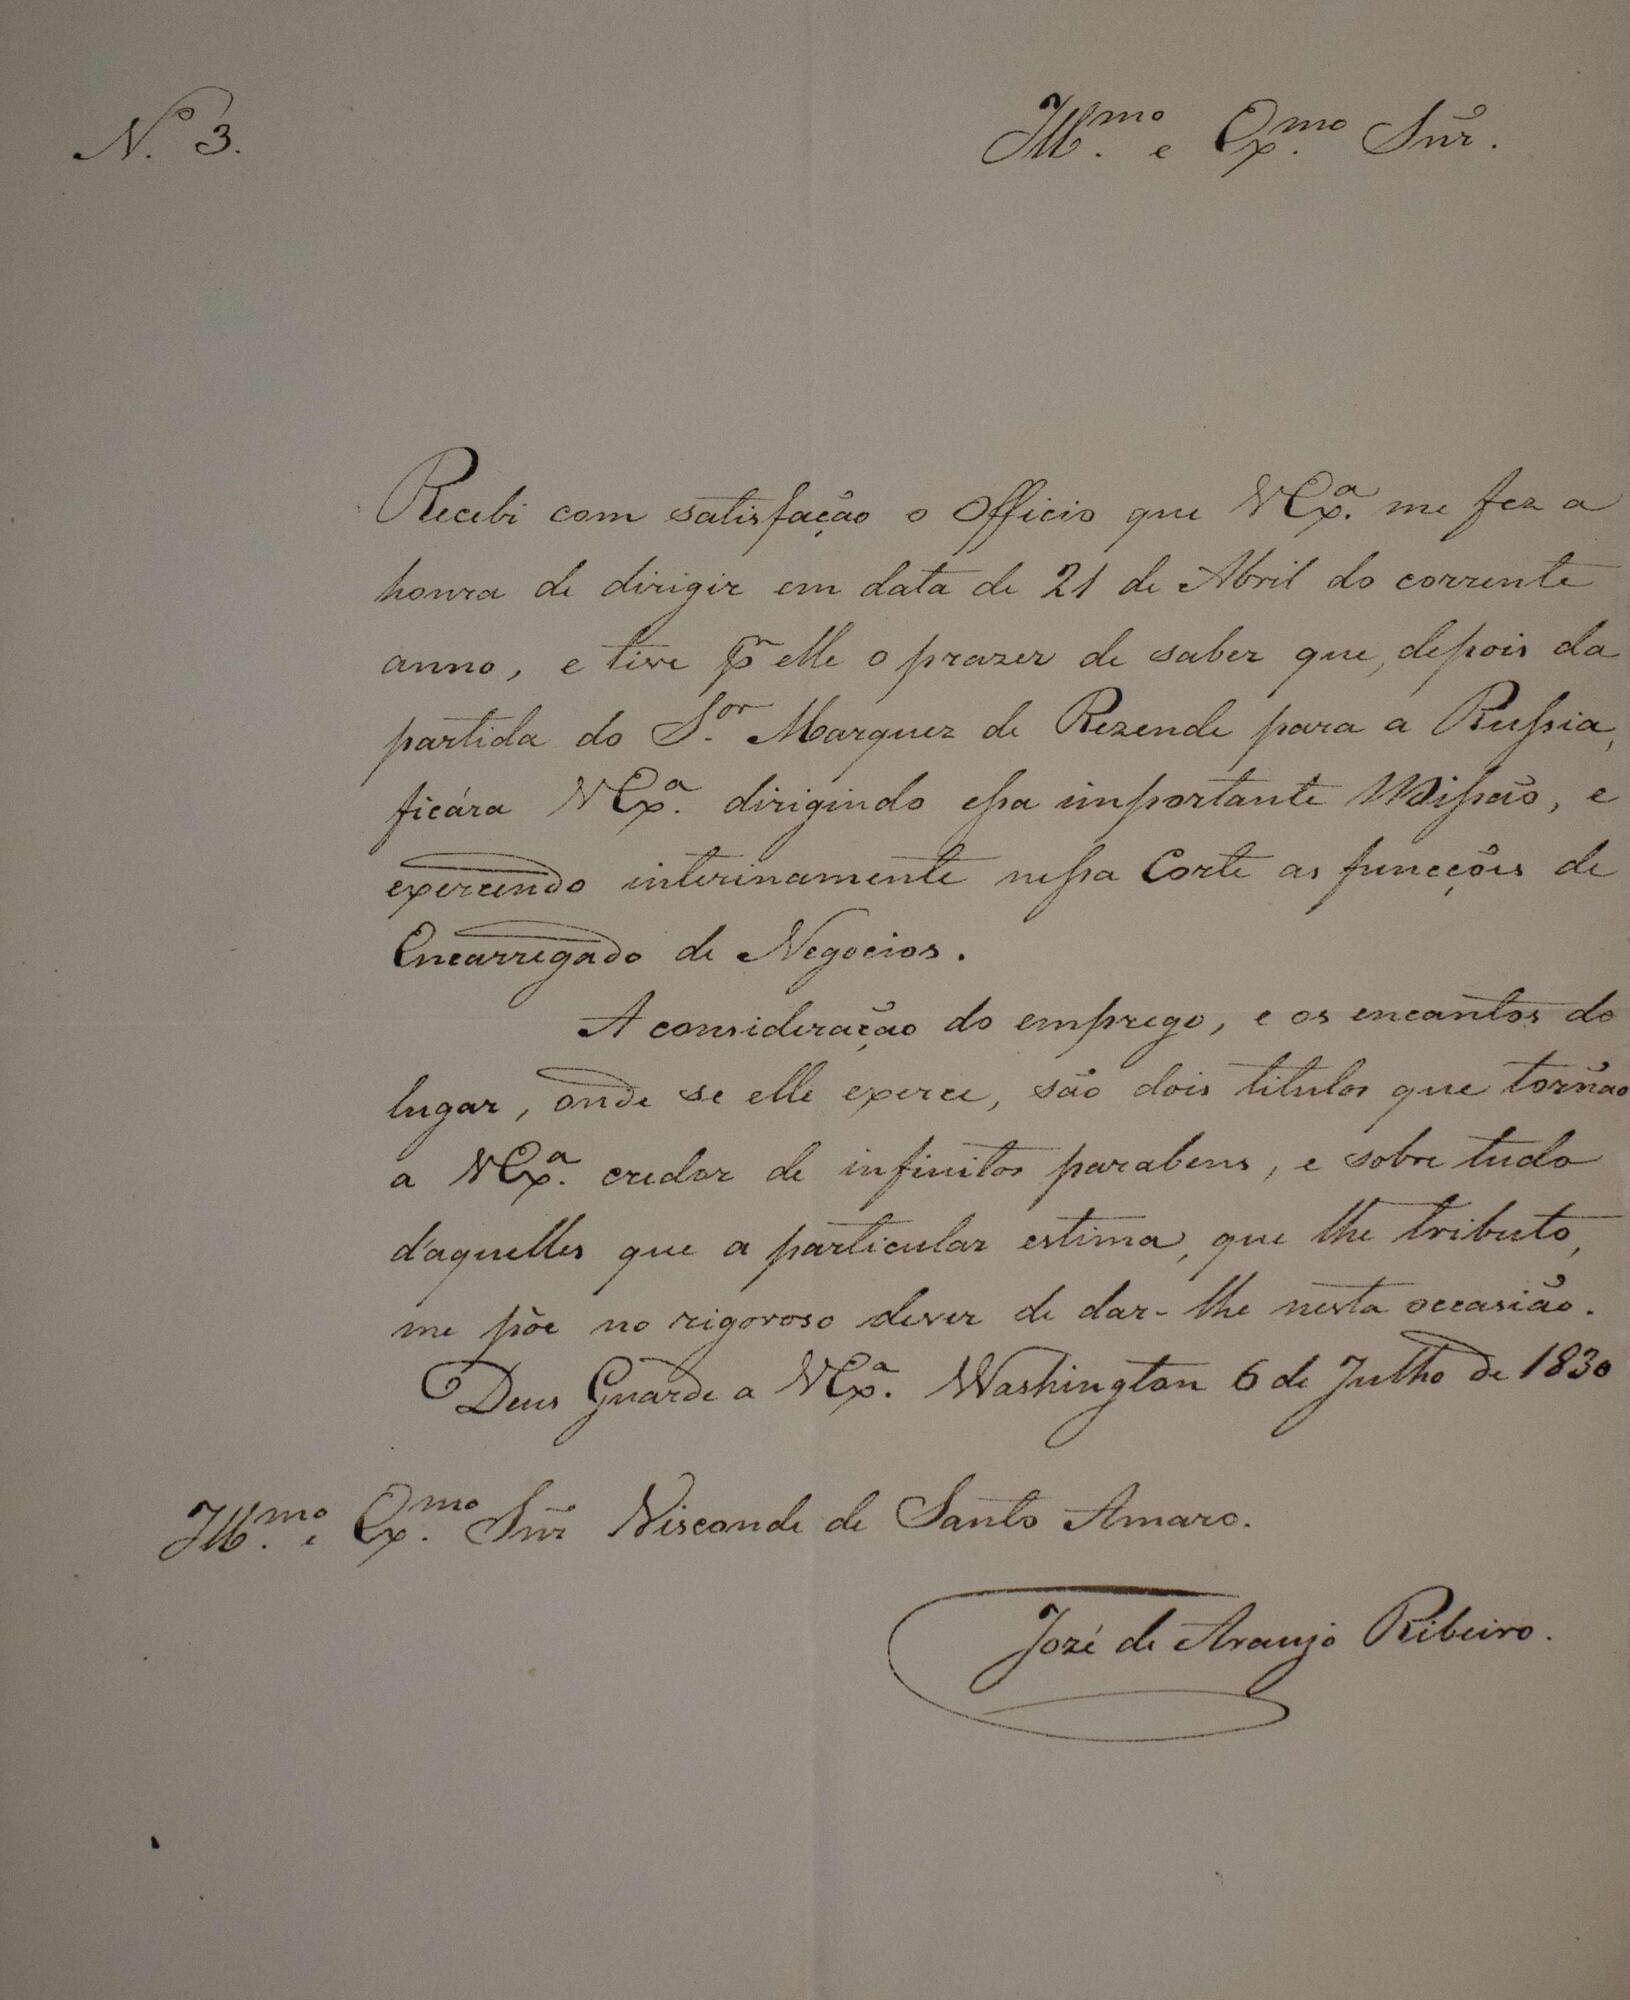 N.º 3.
Ill.mo e Ex.mo Snr.
Recebi com satisfação o Officio que V Ex.ª me fez a
honra de dirigir em data de 21 de Abril do corrente
anno, e tive pr elle o prazer de saber que, depois da
partida do S.or Marquez de Rezende para a Russia,
ficára V Ex.ª dirigindo essa importante Missão, e
exercendo interinamente nessa Corte as funcções de
Encarregado de Negocios.
A consideração do emprego, e os encantos do
lugar, onde se elle exerce, são dois titulos que tornão
a V Ex.ª credor de infinitos parabens, e sobre tudo
d'aquelles que a particular estima, que lhe tributo,
me põe no rigoroso dever de dar-lhe nesta occasião.
Deus Guarde a V Ex.ª Washington 6 de Julho de 1830
Ill.mo e Ex.mo Snr Visconde de Santo Amaro.
Jozé de Araujo Ribeiro.